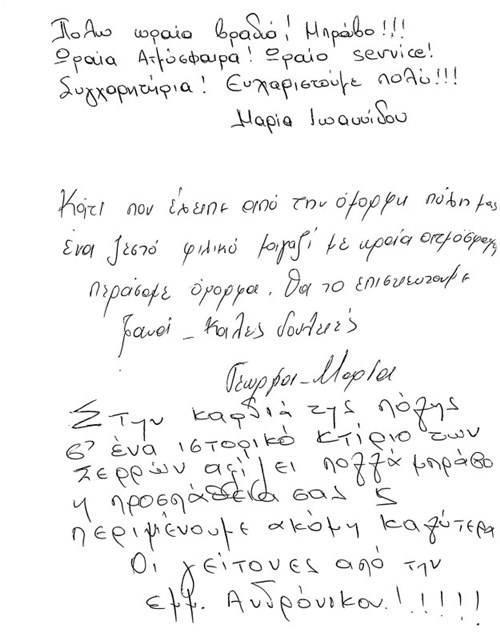 Πολύ ωραίο βραδύ! Μπράβο!!!
Ωραία Ατμόσφαιρα! Ωραίο service!
Συγχαρητήρια! Ευχαριστούμε πολύ!!!
Μαρία Ιωαννίδου
Κάτι που έλειπε από την όμορφη πόλη μας
ένα ζεστό φιλικό μαγαζί με ωραία ατμόσφαιρα
περάσαμε όμορφα. Θα το επισκευτούμε
ξανά - καλές δουλειές
Γεωργία - Μαρία
Στην καρδιά της πόλης
σ' ένα ιστορικό κτίριο των
Σερρών αξίζει πολλά μπράβο
η προσπάθεια σας &
περιμένουμε ακόμη καλύτερα
Οι γείτονες από την
εμμ. Ανδρόνικου.!!!!!!